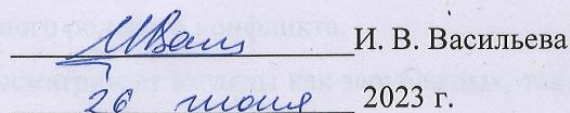 И. В. Васильева
26 июня 2023 г.